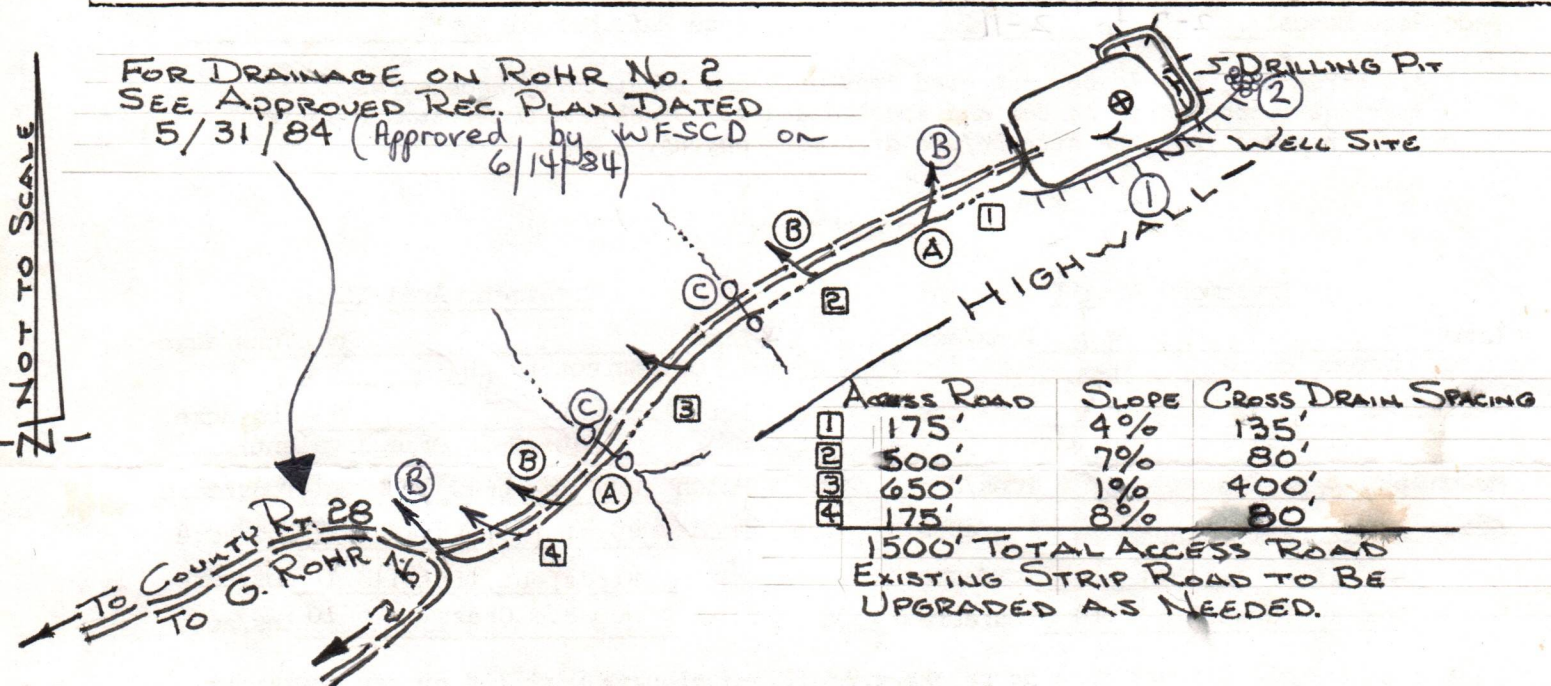 FOR DRAINAGE ON ROHR No. 2
SEE APPROVED REC. PLAN DATED
5/31/84 (Approved by WFSCD on
6/14/84)
NOT TO SCALE
N
DRILLING PIT
2
WELL SITE
1
HIGHWALL
B
1
A
B
2
C
3
C
B
A
4
B
TO COUNTY RT. 28
TO G. ROHR No
2
ACCESS ROAD SLOPE CROSS DRAIN SPACING
1 175' 4% 135'
2 500' 7% 80'
3 650' 1% 400'
4 175' 8% 80'
1500' TOTAL ACCESS ROAD
EXISTING STRIP ROAD TO BE
UPGRADED AS NEEDED.